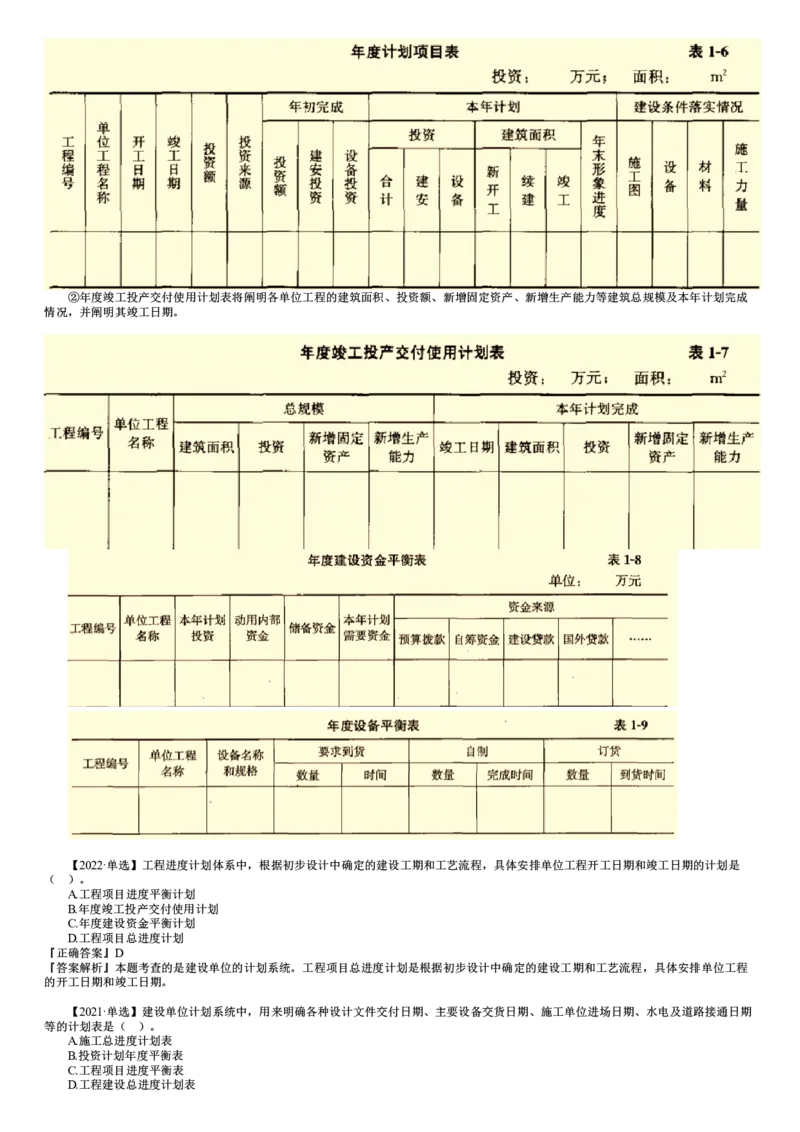 年度计划项目表 表 1-6
投资: 万元; 面积: m²
工程编号 单位工程名称 开工日期 竣工日期 投资额 投资来源 年初完成 本年计划 建设条件落实情况
投资额 建安投资 设备投资 投资 建筑面积 年末形象进度 施工图 设备 材料 施工力量
合计 建安 设备 新开工 续建 竣工
②年度竣工投产交付使用计划表将阐明各单位工程的建筑面积、投资额、新增固定资产、新增生产能力等建筑总规模及本年计划完成
情况，并阐明其竣工日期。
年度竣工投产交付使用计划表 表 1-7
投资: 万元; 面积: m²
工程编号 单位工程名称 总规模 本年计划完成
建筑面积 投资 新增固定资产 新增生产能力 竣工日期 建筑面积 投资 新增固定资产 新增生产能力
年度建设资金平衡表 表 1-8
单位: 万元
工程编号 单位工程名称 本年计划投资 动用内部资金 储备资金 本年计划需要资金 资金来源
预算拨款 自筹资金 建设贷款 国外贷款 ……
年度设备平衡表 表 1-9
工程编号 单位工程名称 设备名称和规格 要求到货 自制 订货
数量 时间 数量 完成时间 数量 到货时间
【2022·单选】工程进度计划体系中，根据初步设计中确定的建设工期和工艺流程，具体安排单位工程开工日期和竣工日期的计划是
（ ）。
A.工程项目进度平衡计划
B.年度竣工投产交付使用计划
C.年度建设资金平衡计划
D.工程项目总进度计划
『正确答案』D
『答案解析』本题考查的是建设单位的计划系统。工程项目总进度计划是根据初步设计中确定的建设工期和工艺流程，具体安排单位工程
的开工日期和竣工日期。
【2021·单选】建设单位计划系统中，用来明确各种设计文件交付日期、主要设备交货日期、施工单位进场日期、水电及道路接通日期
等的计划表是（ ）。
A.施工总进度计划表
B.投资计划年度平衡表
C.工程项目进度平衡表
D.工程建设总进度计划表